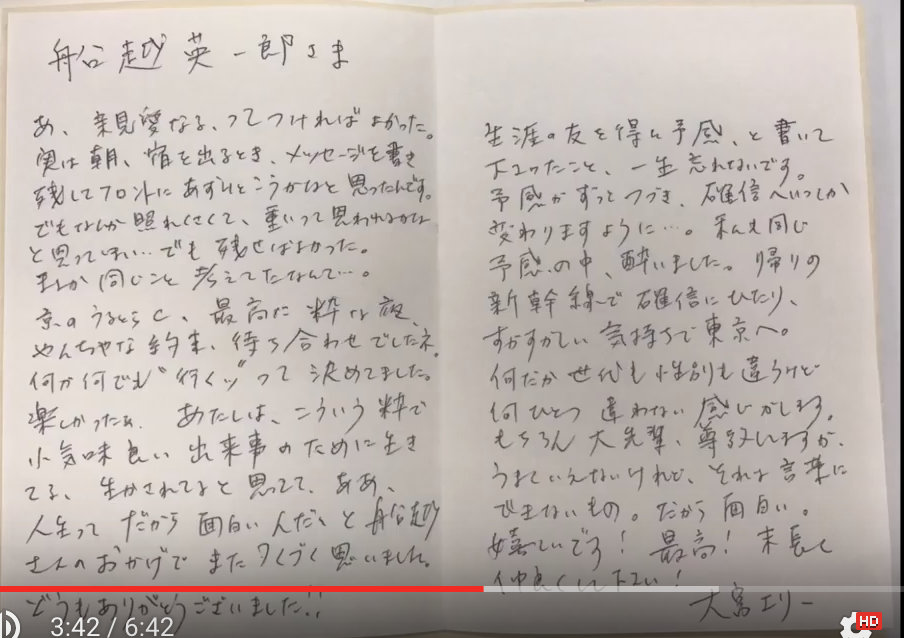 船越英一郎さま
あ、親愛なる、ってつければよかった。
実は朝、宿を出るとき、メッセージを書き
残してフロントにあずけとこうかなと思ったんです。
でもなんか照れくさくて、重いって思われるかな
と思ってしまい…でも残せばよかった。
まさか同じこと考えてたなんて…。
京のうるとらC、最高に粋な夜、
やんちゃな約束、待ち合わせでしたネ。
何が何でも“行くッ”って決めてました。
楽しかったぁ。あたしは、こういう粋で
小気味良い出来事のために生き
てる、生かされてると思ってて、ああ、
人生ってだから面白いんだ、と船越
さんのおかげでまたつくづく思いました。
どうもありがとうございました!!
生涯の友を得た予感、と書いて
下さったこと、一生忘れないです。
予感がずっとつづき、確信へいつしか
変わりますように…。私も同じ
予感の中、酔いました。帰りの
新幹線で確信にひたり、
すがすがしい気持ちで東京へ。
何だか世代も性別も違うけど
何ひとつ違わない感じがします。
もちろん大先輩、尊敬しますが、
うまくいえないけれど、それは言葉に
できないもの。だから面白い。
嬉しいです!最高!末長く
仲良くして下さい!
大宮エリー
3:42 / 6:42
HD